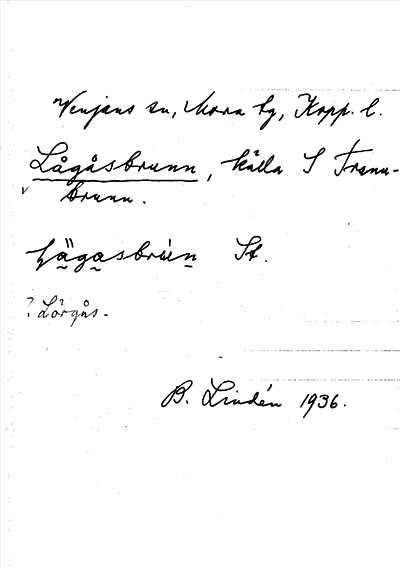 Venjans sn, Mora tg, Kopp. l.
Lågåsbrunn, källa S Tranu-
brunn.
v
St.
? Lörgås-
B. Lindén 1936.